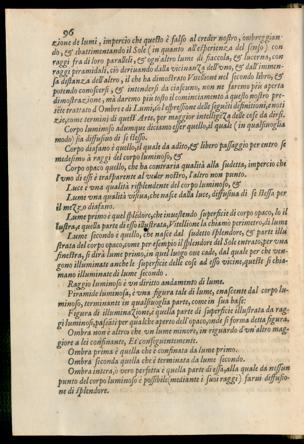 96
zione de lumi, impercio che questo è falso al creder nostro, ombreggian-
do, & sbattimentando il Sole (in quanto all'esperienza del senso) con
raggi fra di loro paralleli, & ogni altro lume di fiaccola, & lucerna, con
raggi piramidali, ciò deriuando dalla vicinanza dell'vno, & dall'immen-
sa distanza dell'altro, il che ha dimostrato Vitellione nel secondo libro, &
potendo conoscersi, & intendersi da ciascuno, non ne faremo più aperta
dimostrazione, mà daremo più tosto il cominciamento à questo nostro pre-
sente trattato d'Ombre & Lumi, co'l espressione delle seguēti definitioni, e noti
zie, come termini di quest'Arte, per maggior intelligēza delle cose da dirsi.
Corpo luminoso adunque diciamo esser quello, il quale (in qualsiuoglia
modo) sia diffusiuo di se stesso.
Corpo diafano è quello, il quale dà adito, & libero passaggio per entro se
medesimo à raggi del corpo luminoso, &
Corpo opaco quello, che ha contraria qualità alla sudetta, impercio che
l'vno di essi è trasparente al veder nostro, l'altro non punto.
Luce è vna qualità risplendente del corpo luminoso, &
Lume vna qualità visiua, che nasce dalla luce, diffusiua di se stessa per
il mezzo diafano.
Lume primo è quel splēdore, che inuestendo superficie di corpo opaco, lo il
lustra, e quella parte di esso illustrata, Vitellione la chiamò perimetro, di lume
Lume secondo è quello, che nasce dal sudetto splendore, & parte illu
strata del corpo opaco, come per esempio il splendore del Sole entrato, per vna
finestra, si dirà lume primo, in quel luogo oue cade, dal quale per che ven-
gono illuminate anche le superficie delle cose ad esso vicine, queste si chia-
mano illuminate di lume secondo.
Raggio luminoso è vn diretto andamento di lume.
Piramide luminosa, è vna figura tale di lume, enascente dal corpo lu-
minoso, terminante in qualsiuoglia parte, come in sua base:
Figura di illuminazione, è quella parte di superficie illustrata da rag-
gi luminosi, passati per qualche aperto dell'opaco, onde si forma detta figura.
Ombra non è altro che vn lume minore, in riguardo d'vn'altro mag-
giore a lei confinante, Et conseguentemente.
Ombra prima è quella che è confinata da lume primo.
Ombra seconda quella che è terminata da lume secondo.
Ombra intera, ò vero perfetta è quella parte di essa, alla quale da nessun
punto del corpo luminoso è possibile (mediante i suoi raggi) farui diffusio-
ne di splendore.